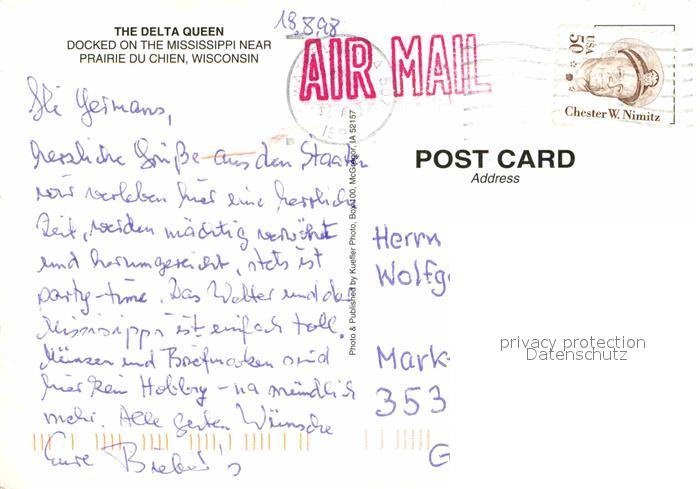 18.8.98
THE DELTA QUEEN
DOCKED ON THE MISSISSIPPI NEAR
PRAIRIE DU CHIEN, WISCONSIN
AIR MAIL
USA
50
Chester W. Nimitz
Hi Germans,
herzliche Grüße aus den Staaten
wir verleben hier eine herrliche
Zeit, werden mächtig verwöhnt
und herumgereicht, stets ist
party-time. Das Wetter und der
Mississippi ist einfach toll.
Münzen und Briefmarken sind
hier kein Hobby - na mündlich
mehr. Alle guten Wünsche
Eure
Photo & Published by Kuefler Photo, Box 100, McGregor, IA 52157
POST CARD
Address
Herrn
Wolfg
Mark-
353
G
privacy protection
Datenschutz